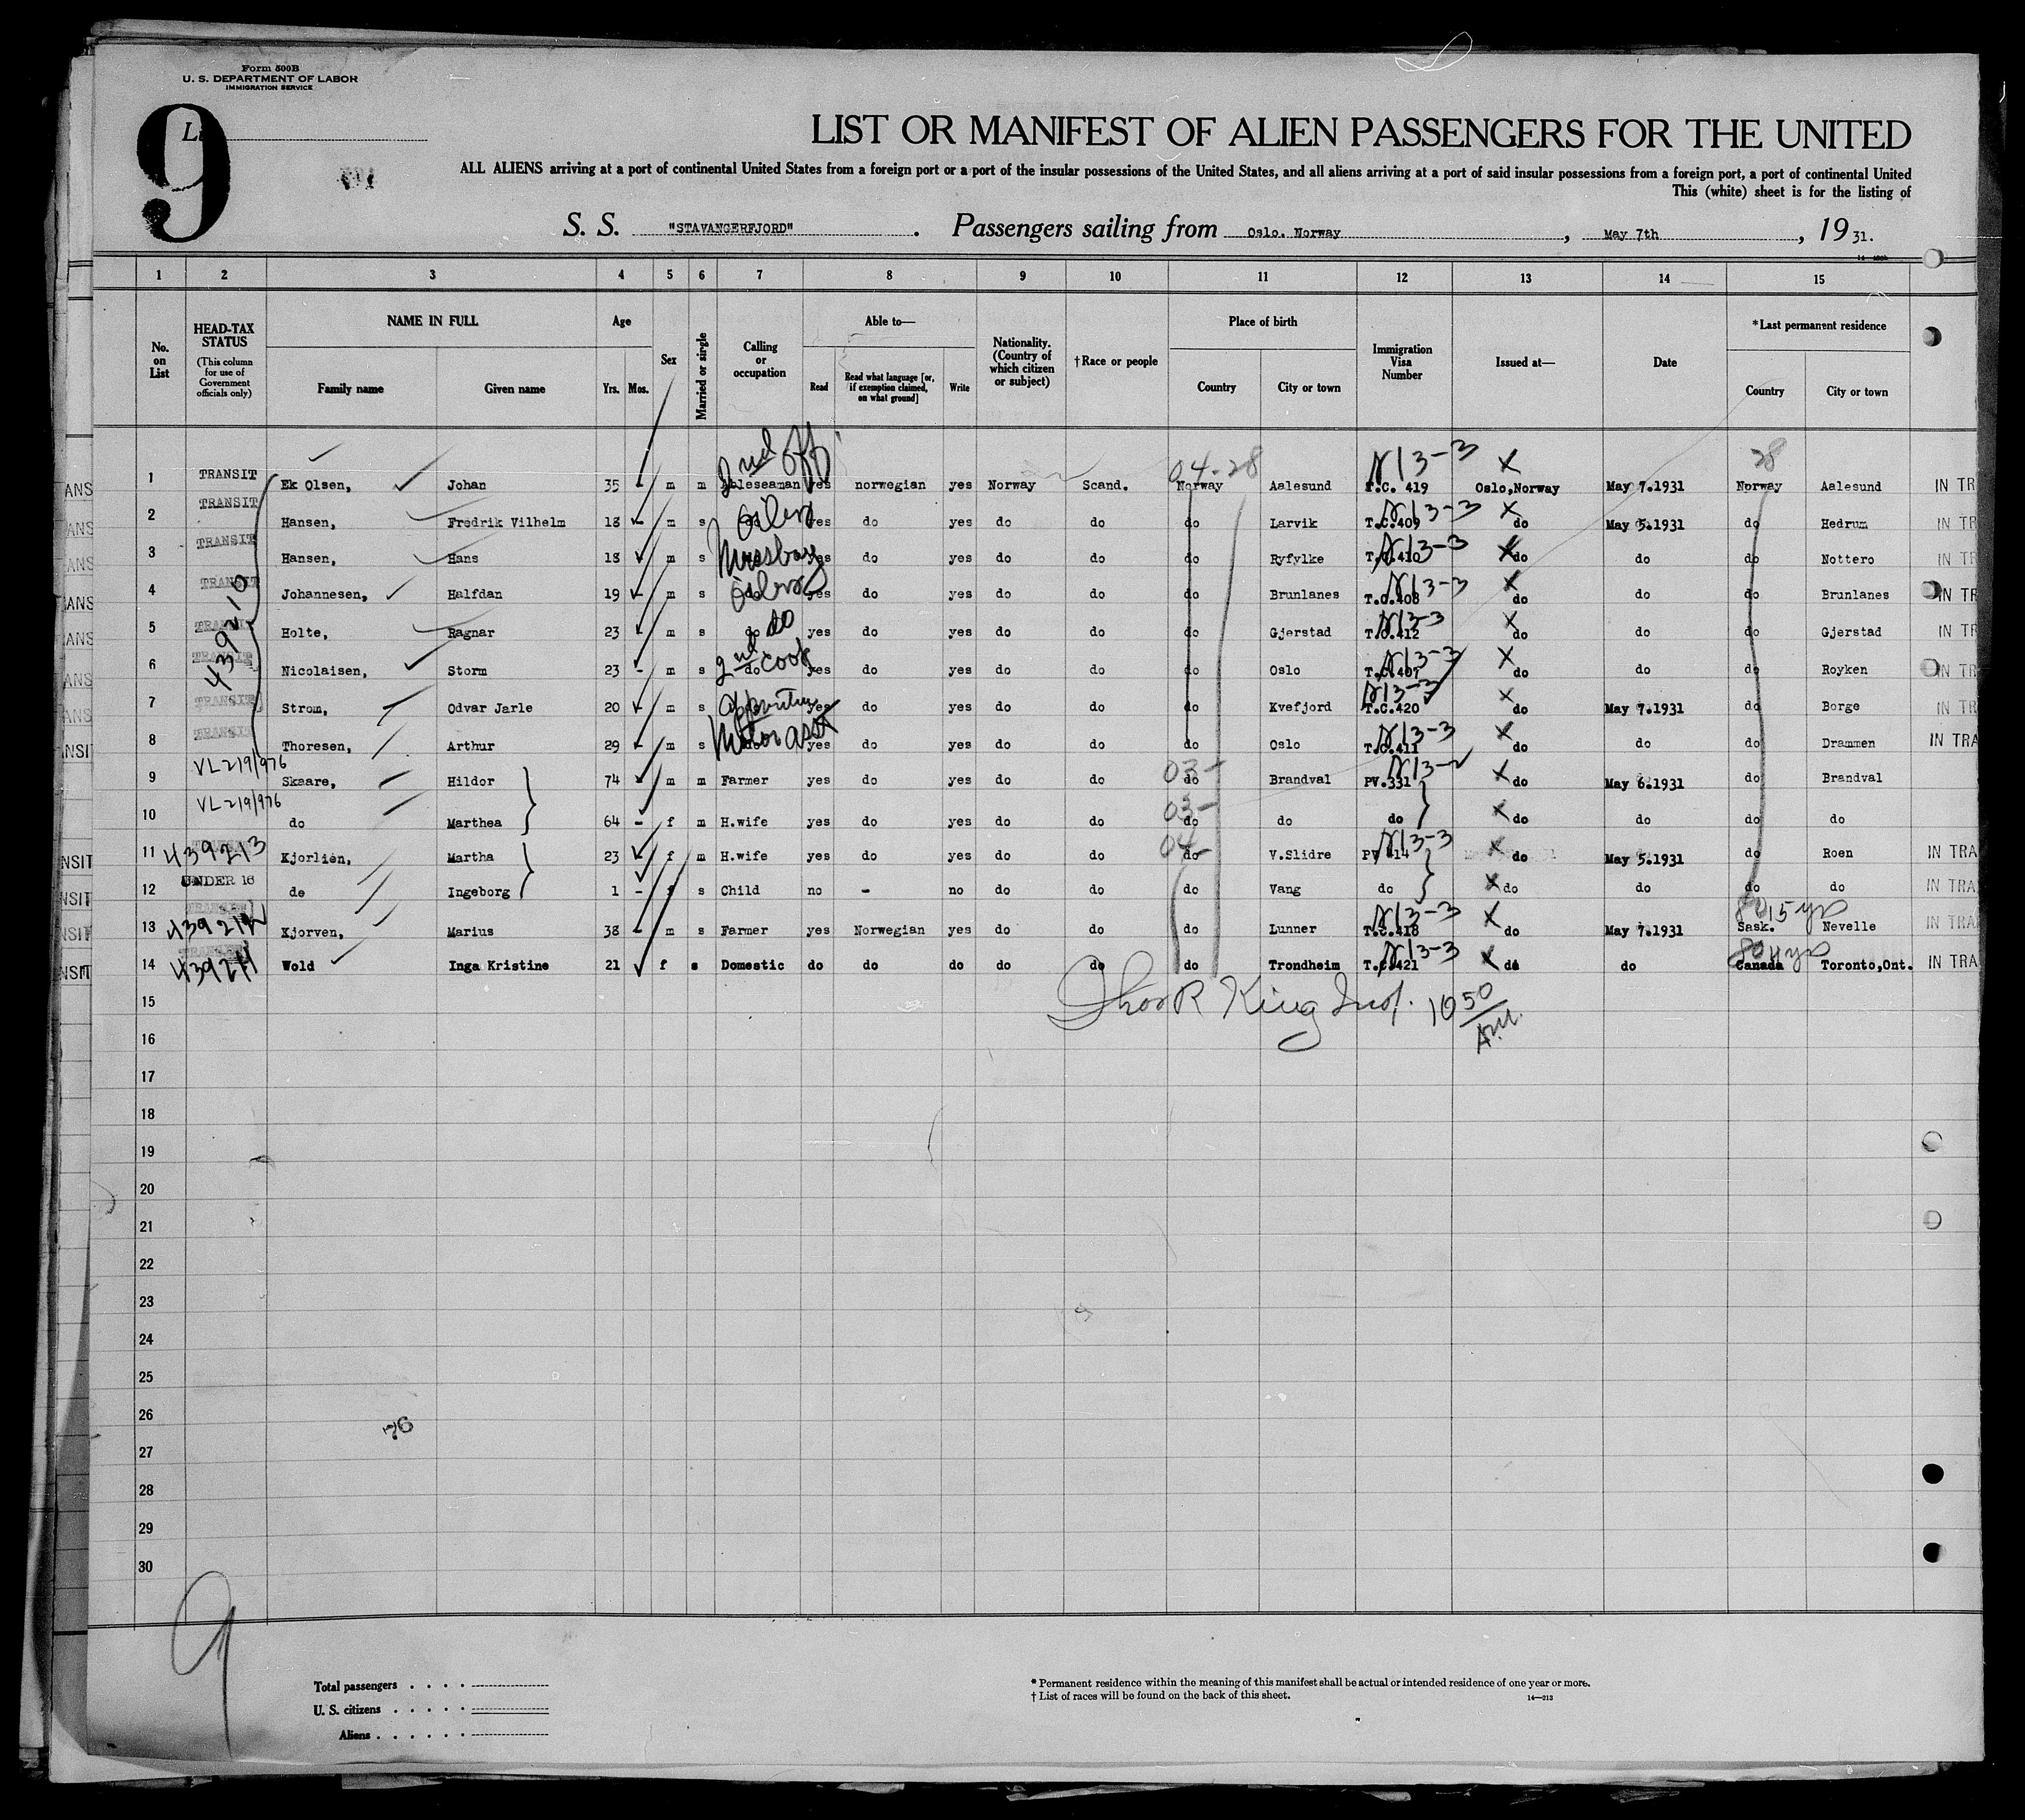 Form 500B
U. S. DEPARTMENT OF LABOR
IMMIGRATION SERVICE
9
LIST OR MANIFEST OF ALIEN PASSENGERS FOR THE UNITED
ALL ALIENS arriving at a port of continental United States from a foreign port or a port of the insular possessions of the United States, and all aliens arriving at a port of said insular possessions from a foreign port, a port of continental United
This (white) sheet is for the listing of
S. S. "STAVANGERFJORD". Passengers sailing from Oslo. Norway, May 7th, 1931.
1 2 3 4 5 6 7 8 9 10 11 12 13 14 15
No. on List
HEAD-TAX STATUS
(This column for use of Government officials only)
NAME IN FULL
Family name
Given name
Age
Yrs. Mos.
Sex
Married or single
Calling or occupation
Able to—
Read
Read what language [or, if exemption claimed, on what ground]
Write
Nationality. (Country of which citizen or subject)
†Race or people
Place of birth
Country
City or town
Immigration Visa Number
Issued at—
Date
*Last permanent residence
Country
City or town
04-28 N13-3 X 28
1 TRANSIT Ek Olsen, Johan 35 - m m Ableseaman 2nd off yes norwegian yes Norway Scand. Norway Aalesund T.C. 419 Oslo,Norway May 7.1931 Norway Aalesund IN TR
2 TRANSIT Hansen, Fredrik Vilhelm 18 - m s do Oiler yes do yes do do do Larvik T.C.409 N13-3 X do May 5.1931 do Hedrum IN TR
3 TRANSIT Hansen, Hans 18 - m s Messboy yes do yes do do do Ryfylke T.C.410 N13-3 X do do do Nottero IN TR
4 TRANSIT Johannesen, Halfdan 19 - m s do Oiler yes do yes do do do Brunlanes T.C.408 N13-3 X do do do Brunlanes IN TR
439210
5 TRANSIT Holte, Ragnar 23 - m s do do yes do yes do do do Gjerstad T.C.412 N13-3 X do do do Gjerstad IN TR
6 TRANSIT Nicolaisen, Storm 23 - m s do 2nd cook yes do yes do do do Oslo T.C.407 N13-3 X do do do Royken IN TR
7 TRANSIT Strom, Odvar Jarle 20 - m s yes do yes do do do Kvefjord T.C.420 N13-3 X do May 7.1931 do Borge IN TR
8 TRANSIT Thoresen, Arthur 29 - m s Motor asst yes do yes do do do Oslo T.C.411 N13-3 X do do do Drammen IN TRA
9 VL219/976 Skaare, Hildor 74 - m m Farmer yes do yes do do 03- do Brandval PV.331 N13-2 X do May 6.1931 do Brandval
10 VL219/976 do Marthea 64 - f m H.wife yes do yes do do 03- do do do X do do do do
11 439213 Kjorlien, Martha 23 - f m H.wife yes do yes do do 04- do V.Slidre PV 414 N13-3 X do May 5.1931 do Roen IN TRA
12 UNDER 16 de Ingeborg 1 - f s Child no - no do do do Vang do X do do do do IN TRA
13 439212 Kjorven, Marius 38 - m s Farmer yes Norwegian yes do do do Lunner T.C.418 N13-3 X do May 7.1931 Sask. 15 yrs Nevelle IN TRA
14 439211 Wold Inga Kristine 21 f s Domestic do do do do do do Trondheim T.C.421 N13-3 X do do Canada Toronto,Ont. IN TRA
15 King Insp. 10 50 A.M.
16
17
18
19
20
21
22
23
24
25
26
76
27
28
29
30
9
Total passengers . . . .
U. S. citizens . . . . .
Aliens . . . . . .
* Permanent residence within the meaning of this manifest shall be actual or intended residence of one year or more.
† List of races will be found on the back of this sheet.
14—213